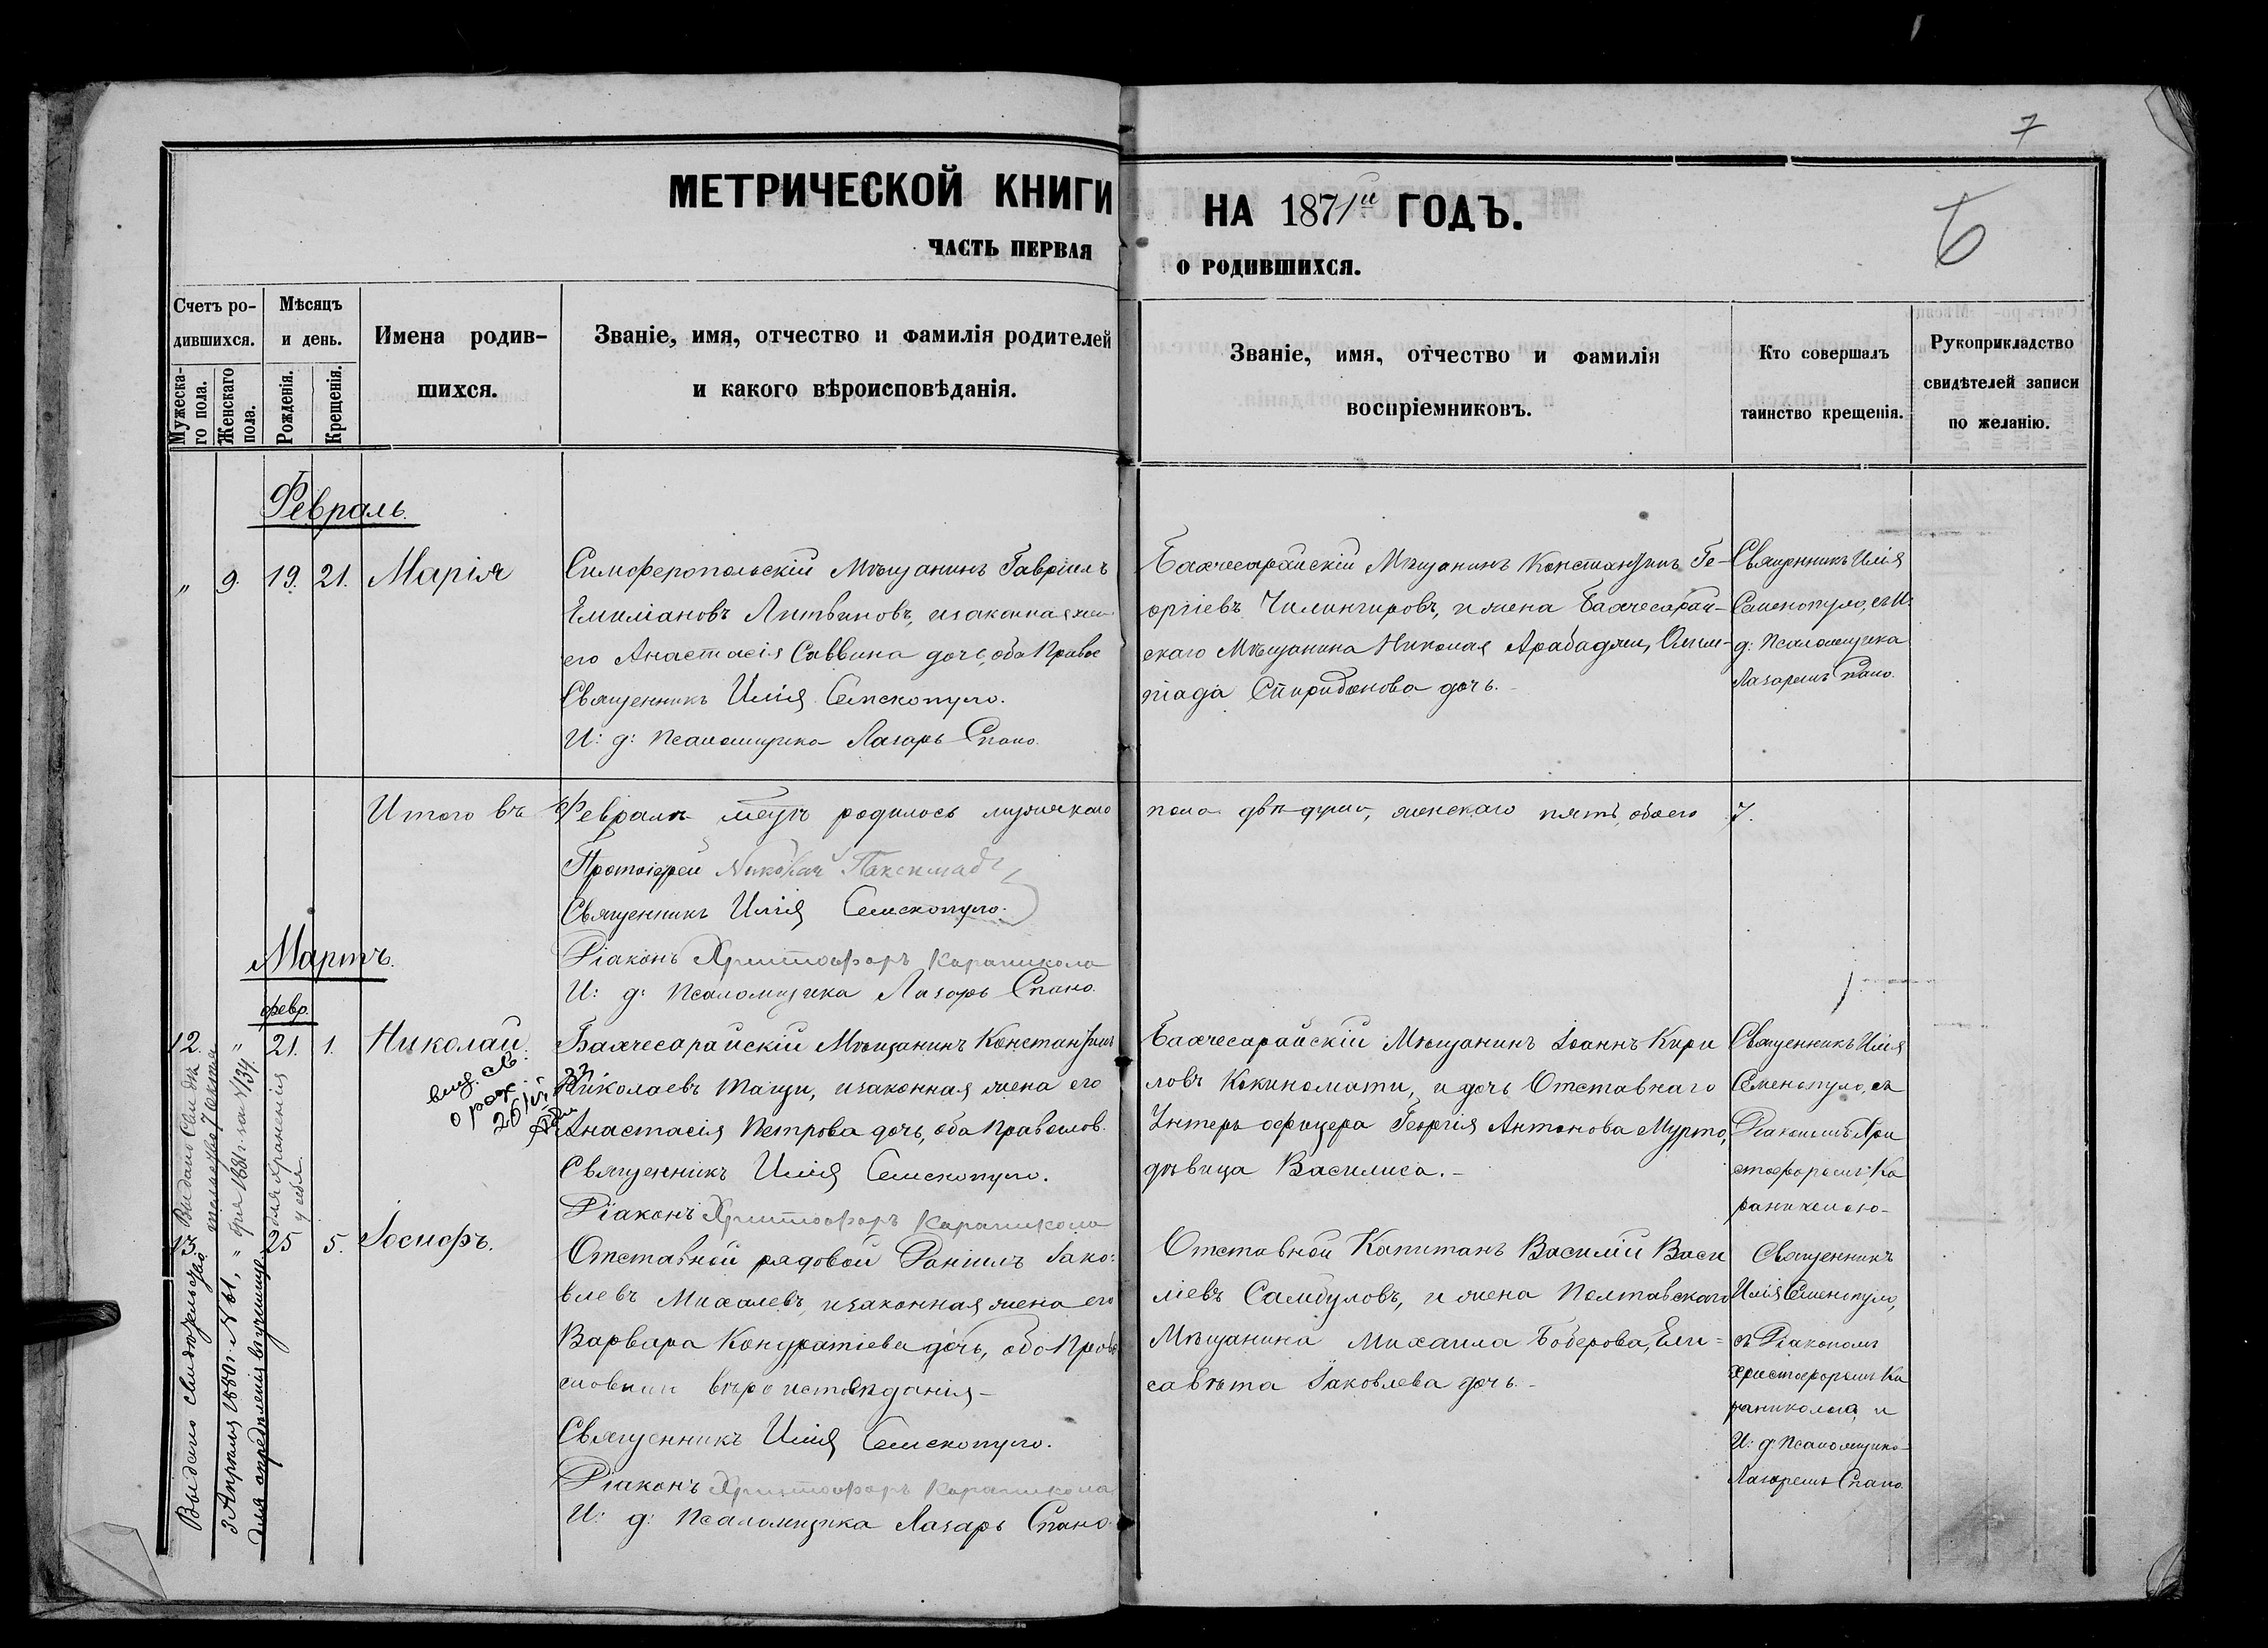 7
МЕТРИЧЕСКОЙ КНИГИ НА 1871й ГОДЪ.
6
ЧАСТЬ ПЕРВАЯ О РОДИВШИХСЯ.
Счетъ ро-
дившихся.
Мужеска-
го пола.
Женскаго
пола.
Мѣсяцъ
и день.
Рожденія.
Крещенія.
Имена родив-
шихся.
Званіе, имя, отчество и фамилія родителей
и какого вѣроисповѣданія.
Званіе, имя, отчество и фамилія
воспріемниковъ.
Кто совершалъ
таинство крещенія.
Рукоприкладство
свидѣтелей записи
по желанію.
Февраль.
" 9. 19. 21. Марія
Симферопольскій Мѣщанинъ Гавріилъ
Емиліановъ Литвиновъ, и законная жен
его Анастасія Саввина дочь, оба Правос
Священникъ Илія
И: д: Псаломщика Лазарь Спано.
Бахчесарайскій Мѣщанинъ Константинъ Ге-
оргіевъ Чилингировъ, и жена Бахчесарай-
скаго Мѣщанина Николая Арабаджи, Олим-
піада Спиридонова дочь.-
Священникъ Илія
съ И:
д: Псаломщика
Лазаремъ Спано.
Итого въ Февралѣ мѣцѣ родилось мужскаго пола двѣ души, женскаго пять, обоего 7.
Протоіерей Николай
Священникъ Илія
Діаконъ Христофоръ Караникола
И: д: Псаломщика Лазарь Спано.
Мартъ.
февр.
12. " 21. 1. Николай.
выд. св.
о рож.
Бахчесарайскій Мѣщанинъ Константинъ
Николаевъ Тащи, и законная жена его
Анастасія Петрова дочь, оба Правослов.
Священникъ Илія
Діаконъ Христофоръ Караникола
Бахчесарайскій Мѣщанинъ Іоаннъ Кири
ловъ Кокиномати, и дочь Отставнаго
Унтеръ офицера Георгія Антонова Мурто,
дѣвица Василиса.-
Священникъ Илія
съ
Діакономъ Хри
стофоромъ Ка
раниколою-
13. " 25 5. Іосифъ.
Отставной рядовой Даніилъ Іако:
влевъ Михалевъ, и законная жена его
Варвара Кондратіева дочь, оба Право
словнаи вѣроисповѣданія-
Священникъ Илія
Діаконъ Христофоръ Караникола
И: д: Псаломщика Лазарь Спано.
Отставной Капитанъ Василій Васи
ліевъ Самбуловъ, и жена Полтавскаго
Мѣщанина Михаила Боберова, Ели-
савѣта Іаковлева дочь.-
Священникъ
Илія
съ Діакономъ
Христофоромъ Ка
раниколою и
И: д: Псаломщика
Лазаремъ Спано.
для храненія
у себя
Выдано свидѣтельство
3 Апрѣля 1880 г. № 61,
для опредѣленія въ училище